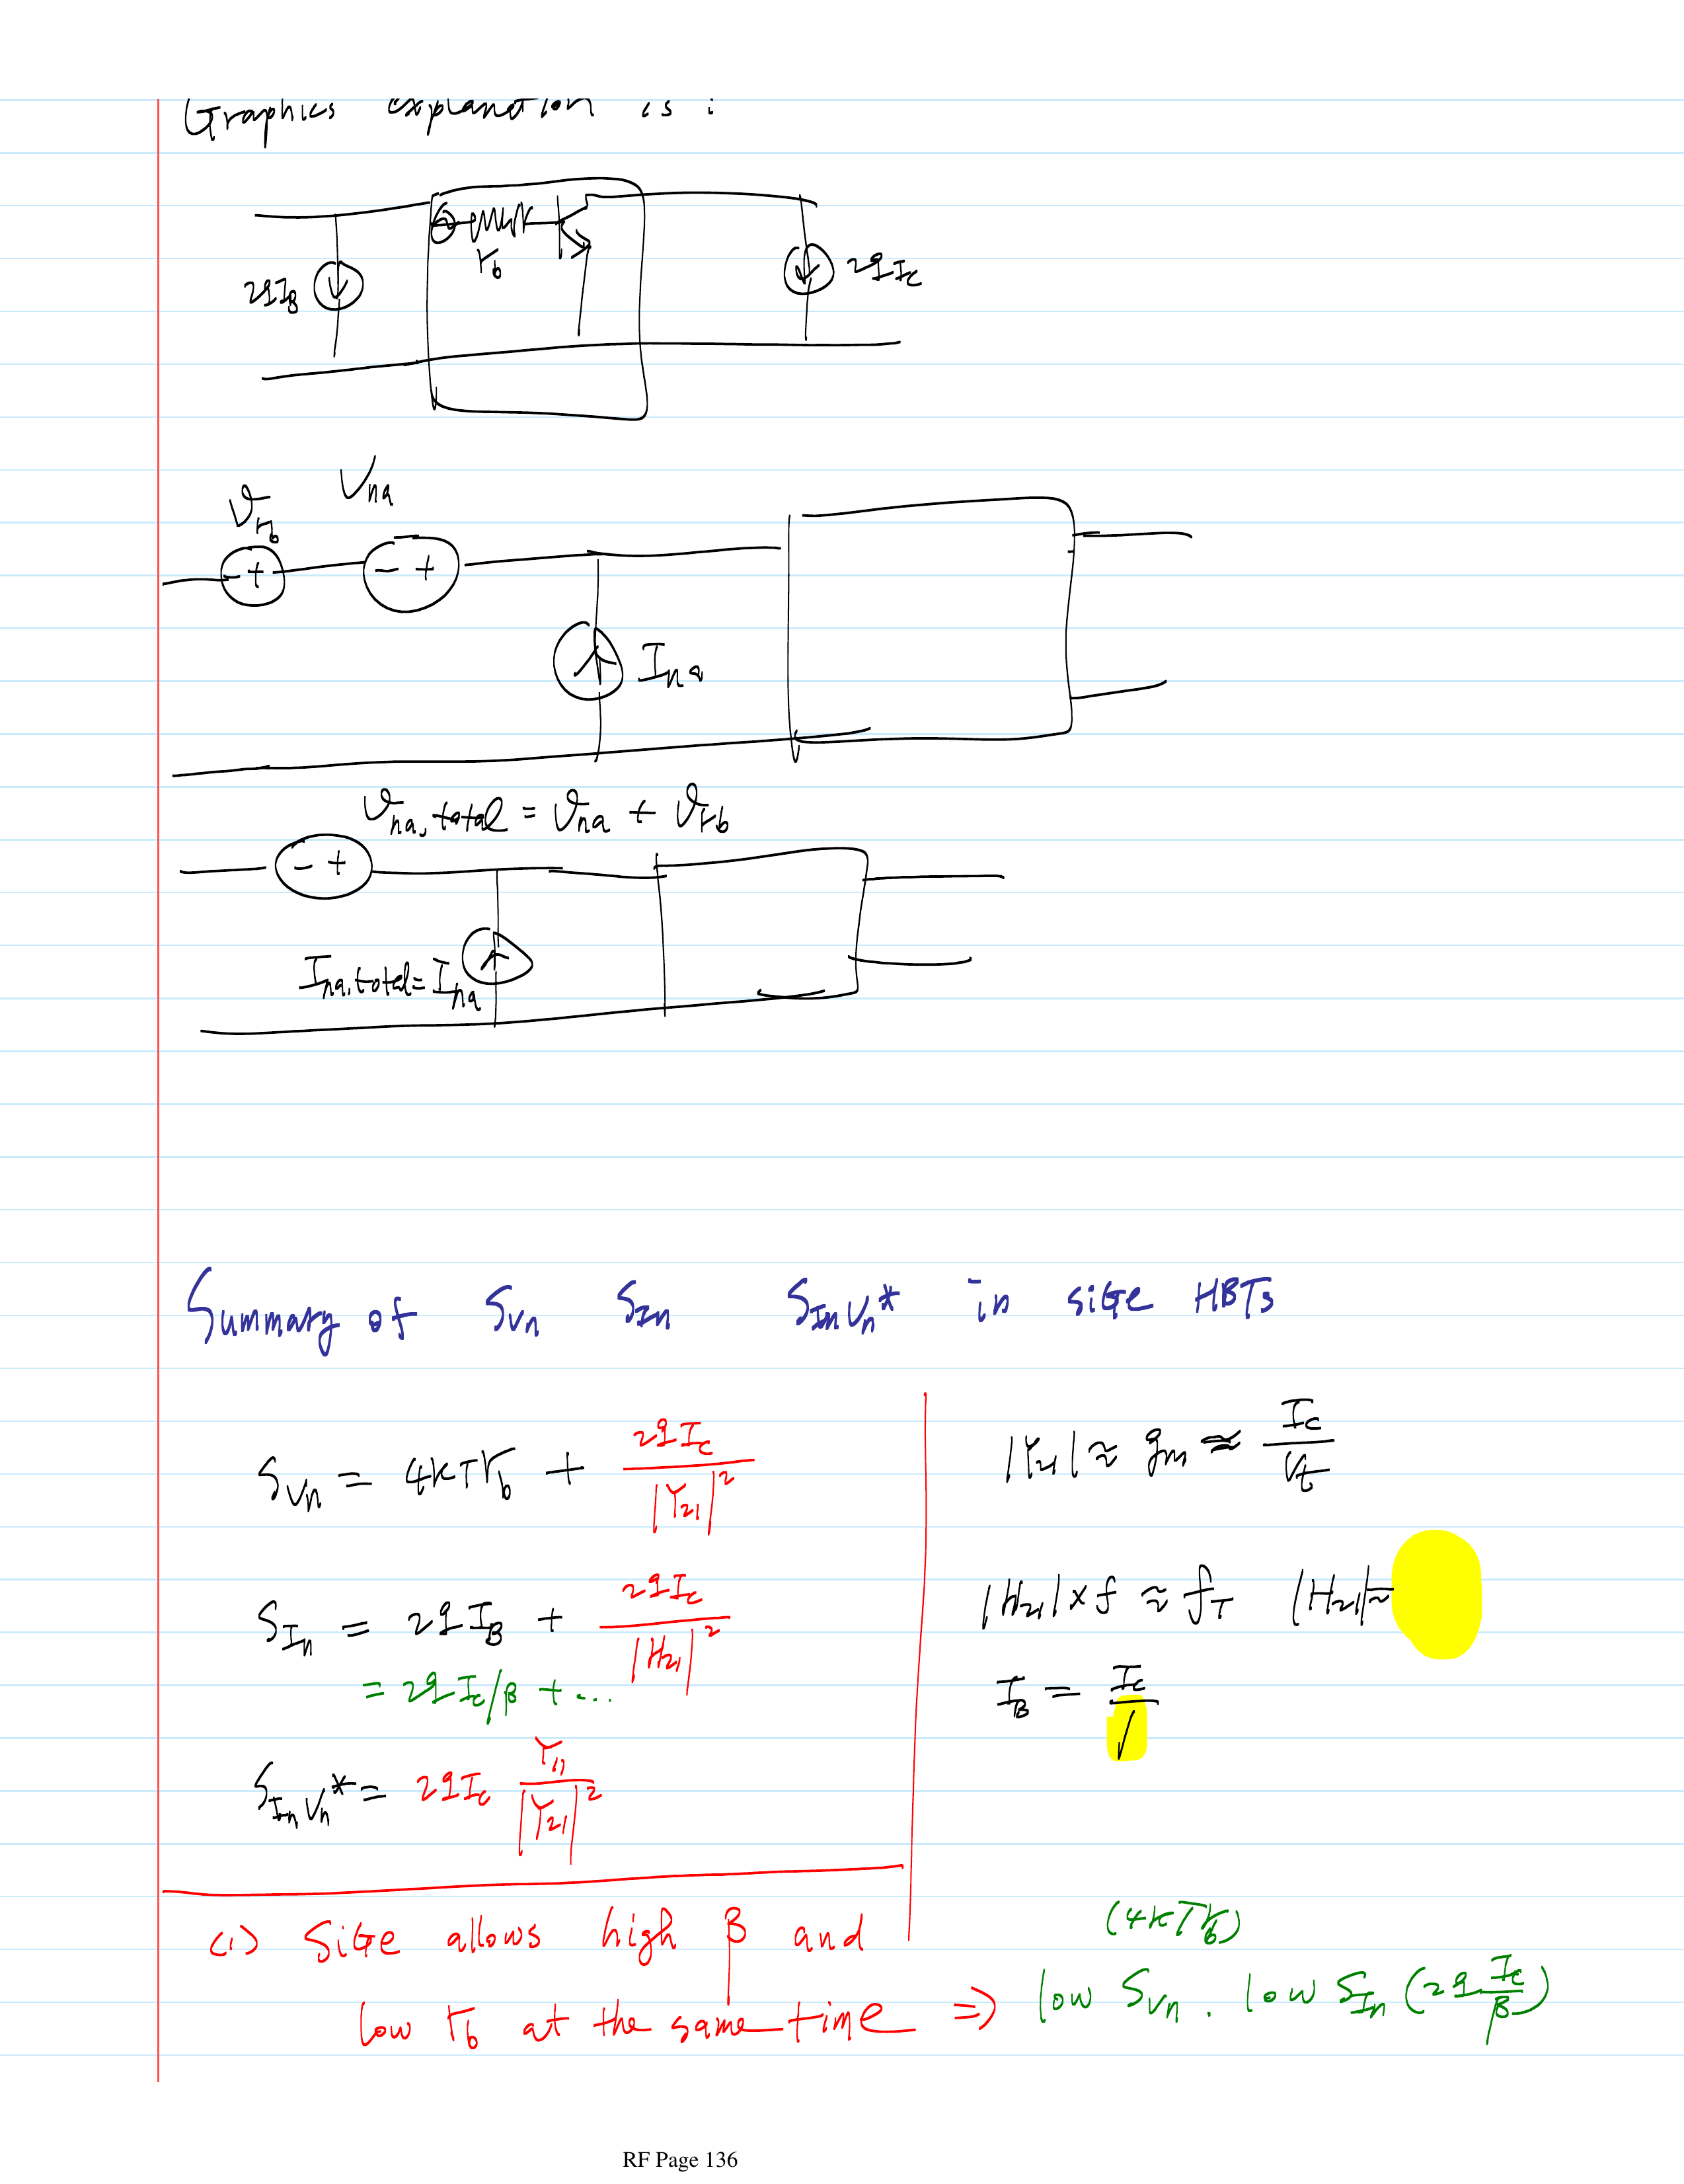 Graphics explanation is :
2qI_B
r_b
2qI_C
V_rb V_na
- + - +
I_na
V_na,total = V_na + V_rb
- +
I_na,total = I_na
Summary of S_Vn S_In S_InVn* in SiGe HBTs
S_Vn = 4KTr_b + 2qI_C / |Y_21|^2
S_In = 2qI_B + 2qI_C / |H_21|^2
= 2qI_C/β + ...
S_InVn* = 2qI_C Y_11 / |Y_21|^2
|Y_21| ≈ g_m ≈ I_C / V_t
|H_21| × f ≈ f_T |H_21| ≈
I_B = I_C /
(1) SiGe allows high β and
low r_b at the same time ⇒
(4KTr_b)
low S_Vn . low S_In (2q I_C / β)
RF Page 136